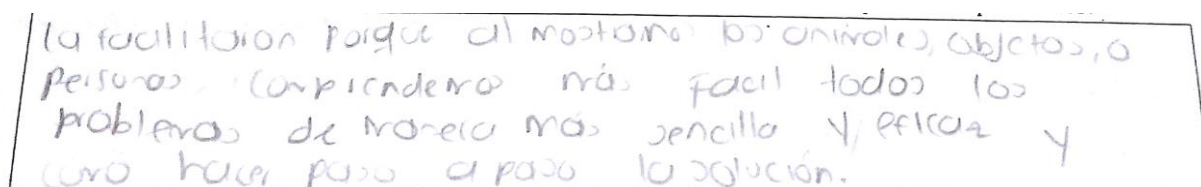 la facilitaron porque al mostrarno los animales, objetos, o
personas comprendemo más facil todos los
problemas de manera más sencilla y eficaz y
como hacer paso a paso la solución.